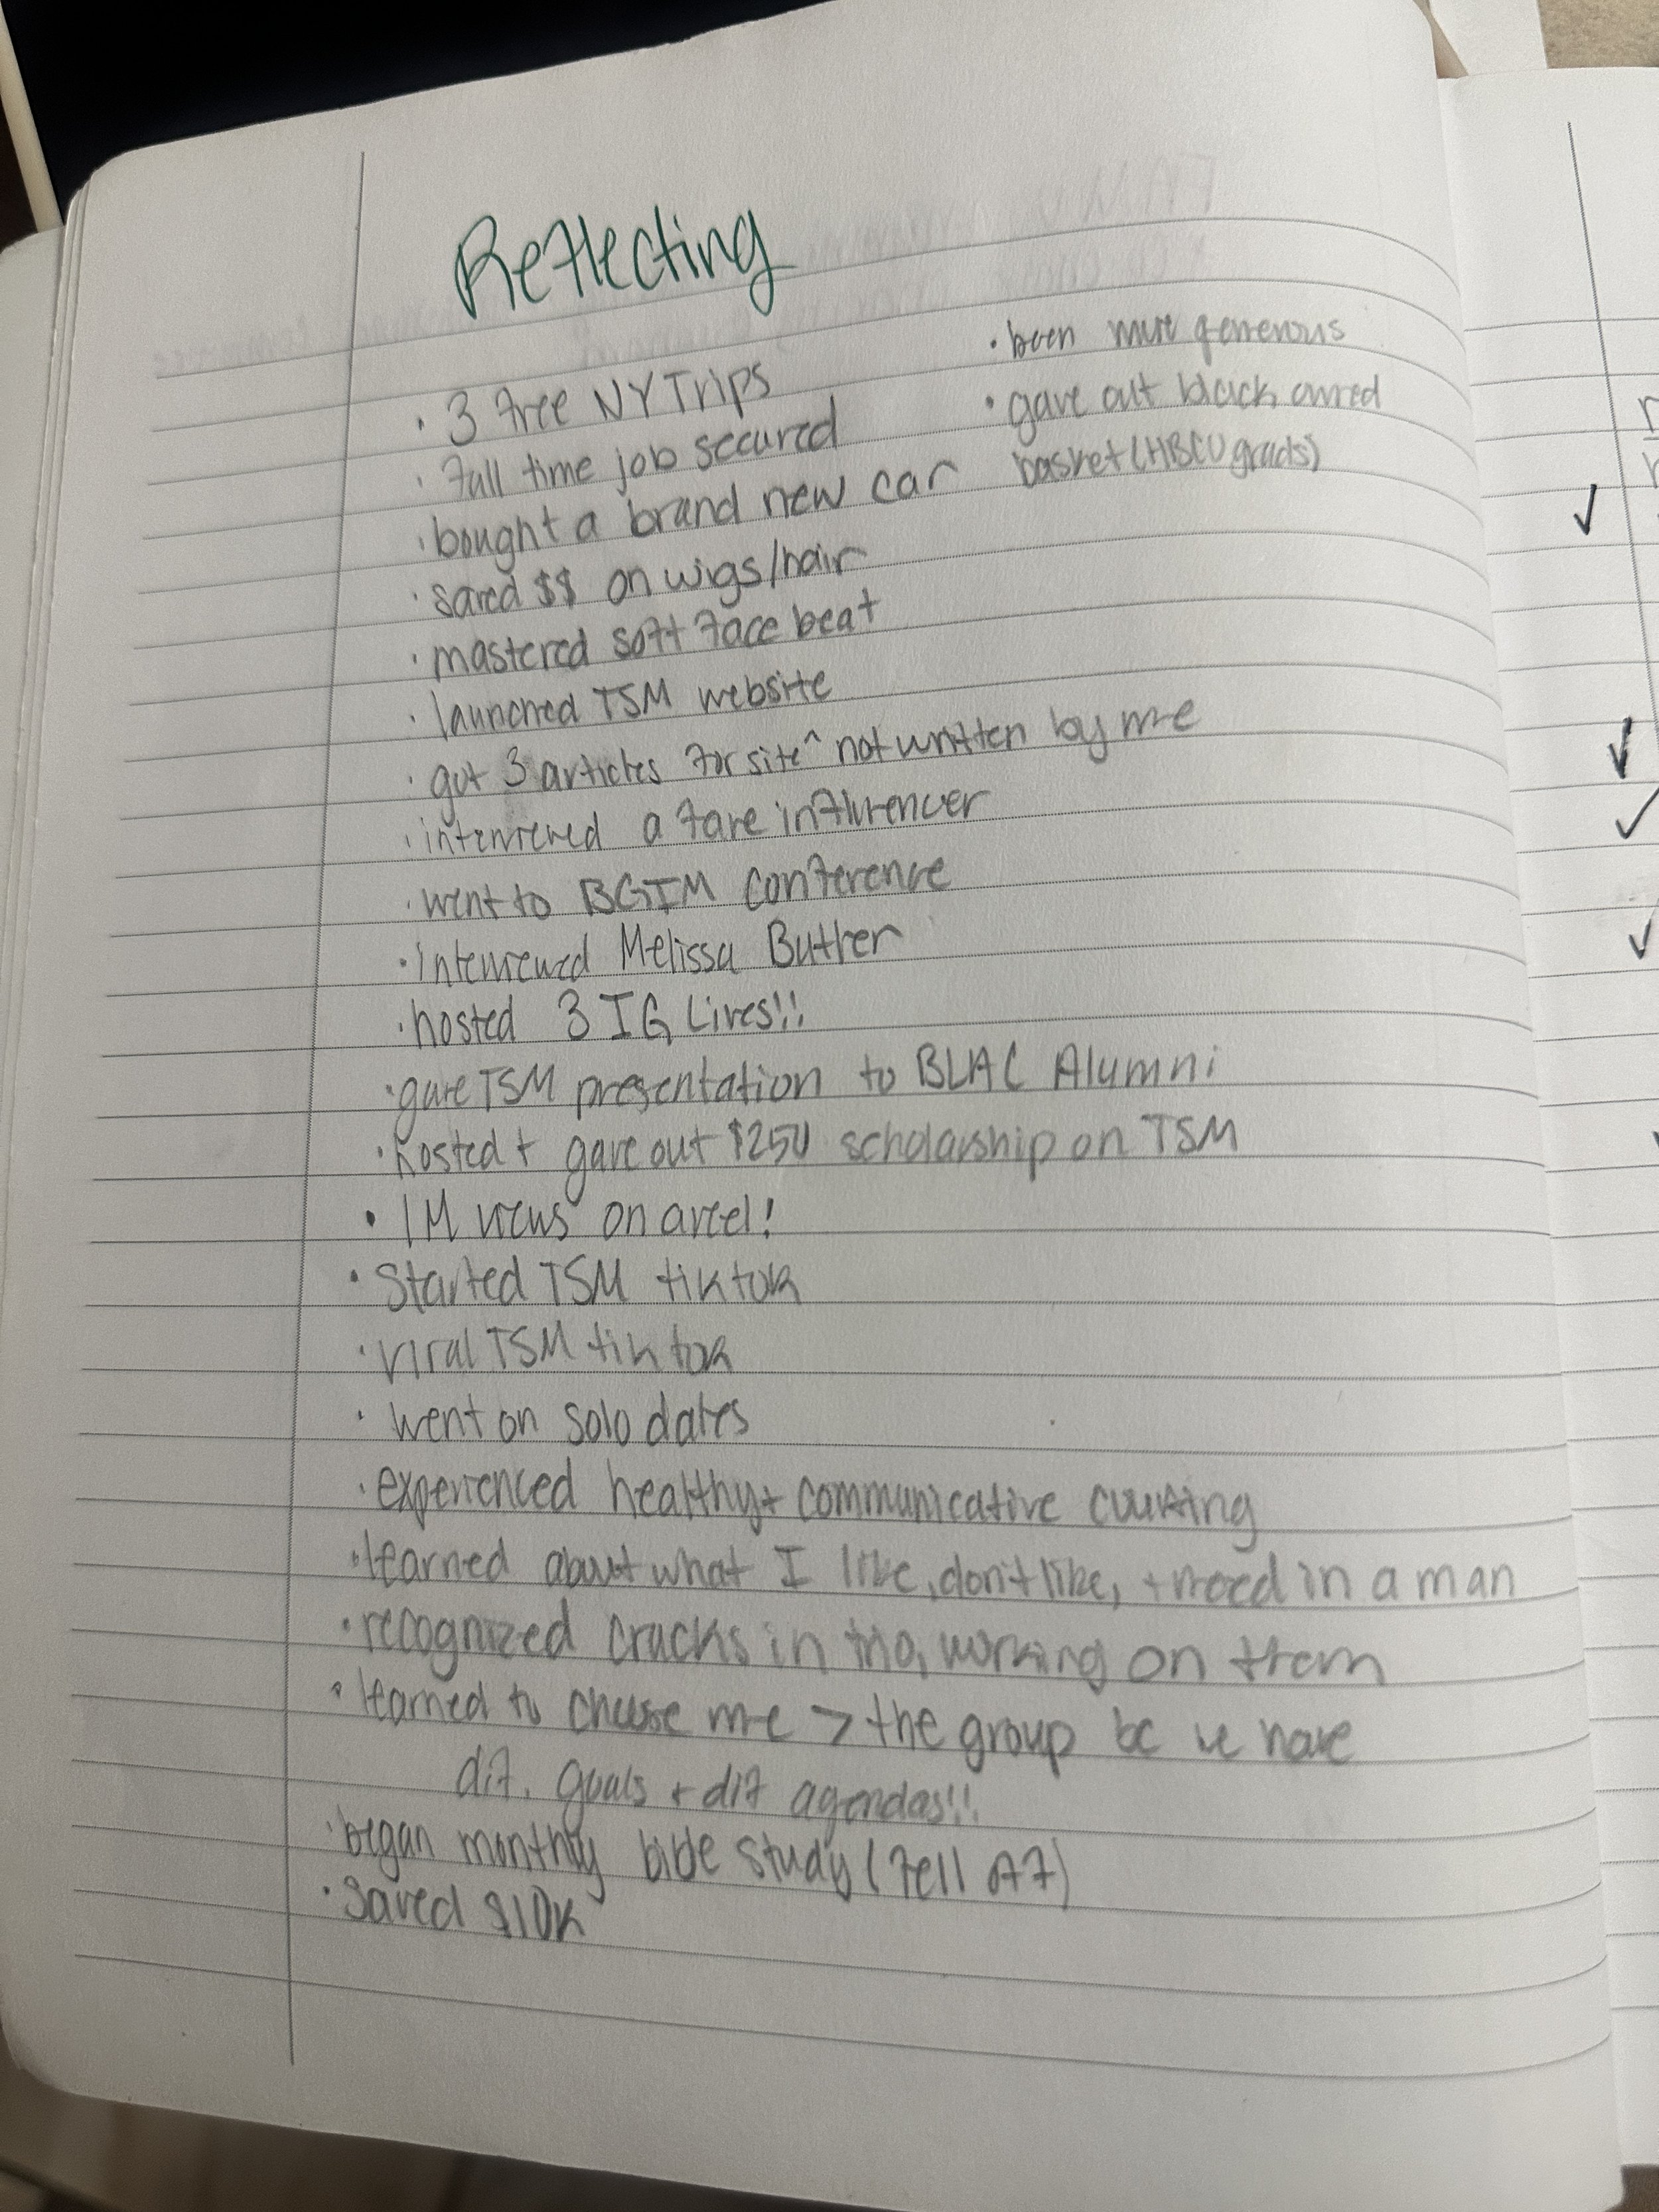 Reflecting
• 3 free NY Trips
• full time job secured
• bought a brand new car
• saved $$ on wigs/hair
• mastered soft face beat
• launched TSM website
• got 3 articles for site ^ not written by me
• interviewed a fave influencer
• went to BGIM conference
• Interviewed Melissa Butler
• hosted 3 IG Lives!!
• gave TSM presentation to BLAC Alumni
• hosted + gave out $250 scholarship on TSM
• 1M views on a reel!
• Started TSM tiktok
• viral TSM tiktok
• went on solo dates
• experienced healthy + communicative courting
• learned about what I like, don't like, + need in a man
• recognized cracks in trio, working on them
• learned to choose me > the group bc we have
dif. goals + dif agendas!!
• began monthly bible study (fell off)
• Saved $10K
• been more generous
• gave out black owned
basket (HBCU grads)